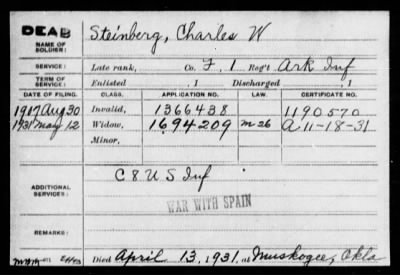 DEAD
NAME OF SOLDIER: Steinberg, Charles W
SERVICE: Late rank, Co. F, 1 Reg't Ark Inf
TERM OF SERVICE: Enlisted , 1 Discharged , 1
DATE OF FILING. CLASS. APPLICATION NO. LAW. CERTIFICATE NO.
1917 Aug 30 Invalid, 1366438 1190570
1931 May 12 Widow, 1694209 M-26 A 11-18-31
Minor,
ADDITIONAL SERVICES: C 8 U S Inf
WAR WITH SPAIN
REMARKS:
Died April 13, 1931, at Muskogee, Okla